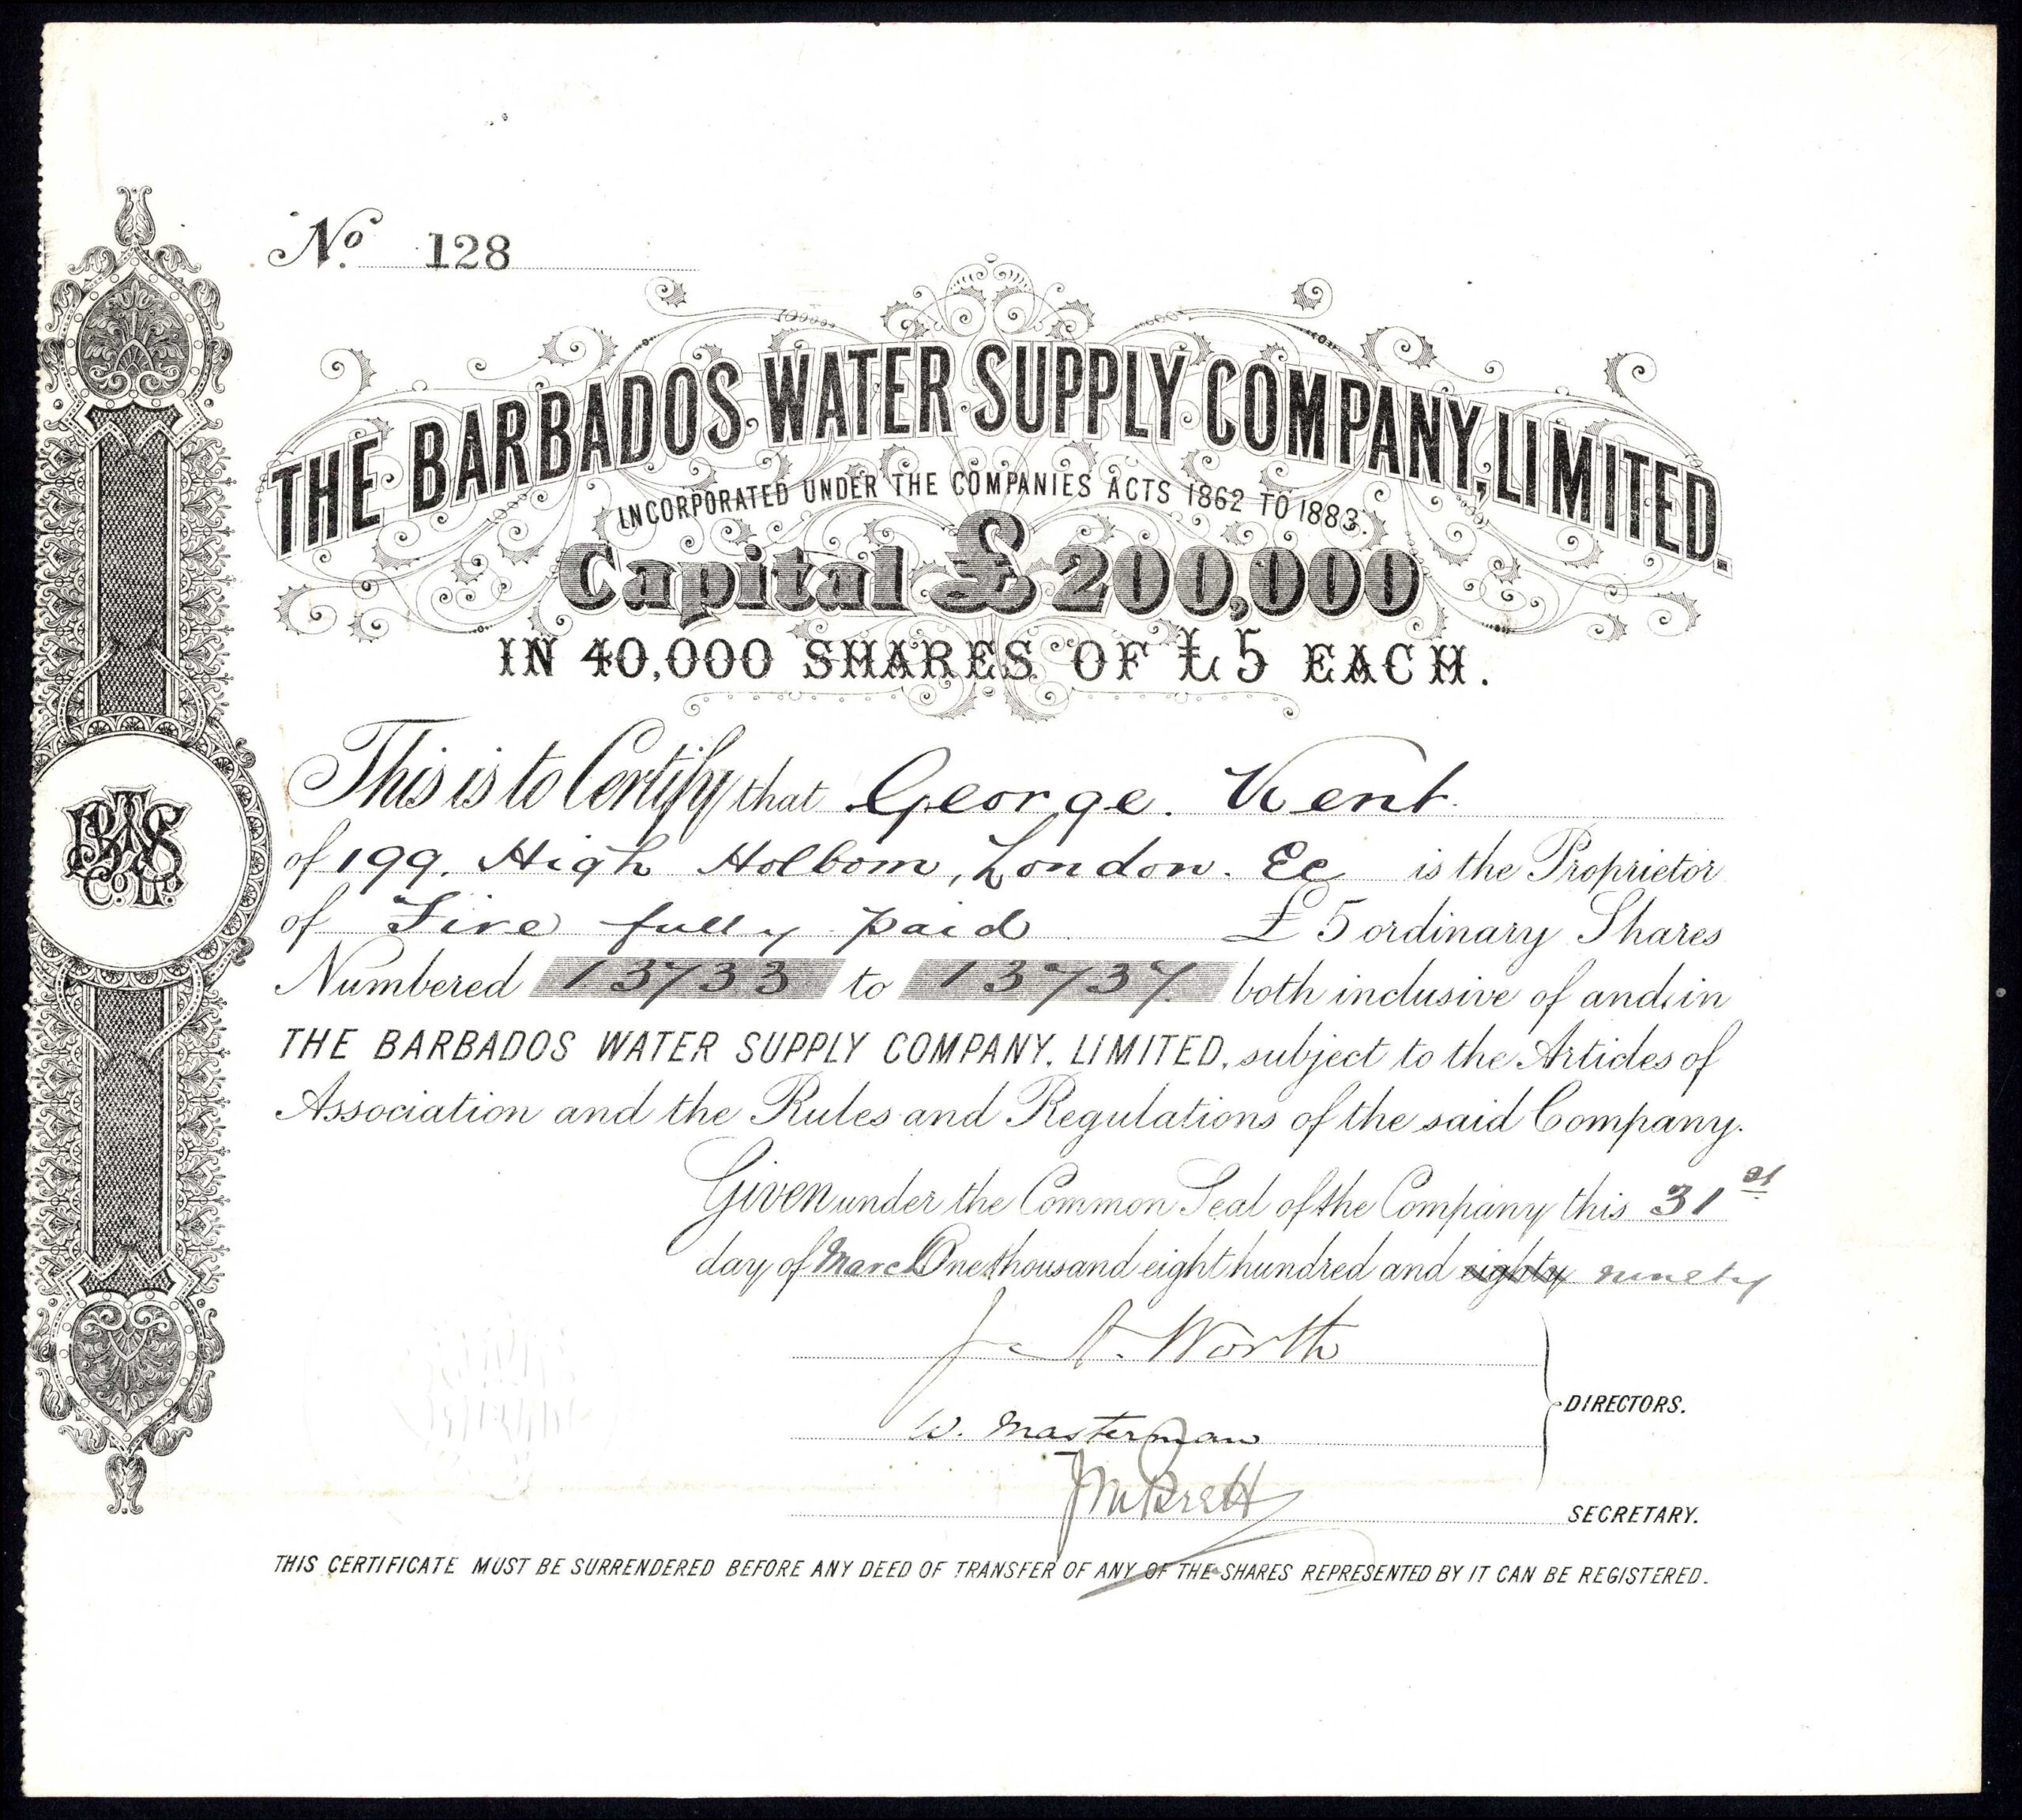 No. 128
THE BARBADOS WATER SUPPLY COMPANY, LIMITED.
INCORPORATED UNDER THE COMPANIES ACTS 1862 TO 1883.
Capital £200,000
IN 40,000 SHARES OF £5 EACH.
This is to Certify that George. Kent
of 199. High Holborn, London. Ec is the Proprietor
of Five fully paid £5 ordinary Shares
Numbered 13733 to 13737 both inclusive of and in
THE BARBADOS WATER SUPPLY COMPANY, LIMITED, subject to the Articles of
Association and the Rules and Regulations of the said Company.
Given under the Common Seal of the Company this 31st
day of March One thousand eight hundred and eighty ninety
J. A. Worth
W. Masterman
DIRECTORS.
SECRETARY.
THIS CERTIFICATE MUST BE SURRENDERED BEFORE ANY DEED OF TRANSFER OF ANY OF THE SHARES REPRESENTED BY IT CAN BE REGISTERED.